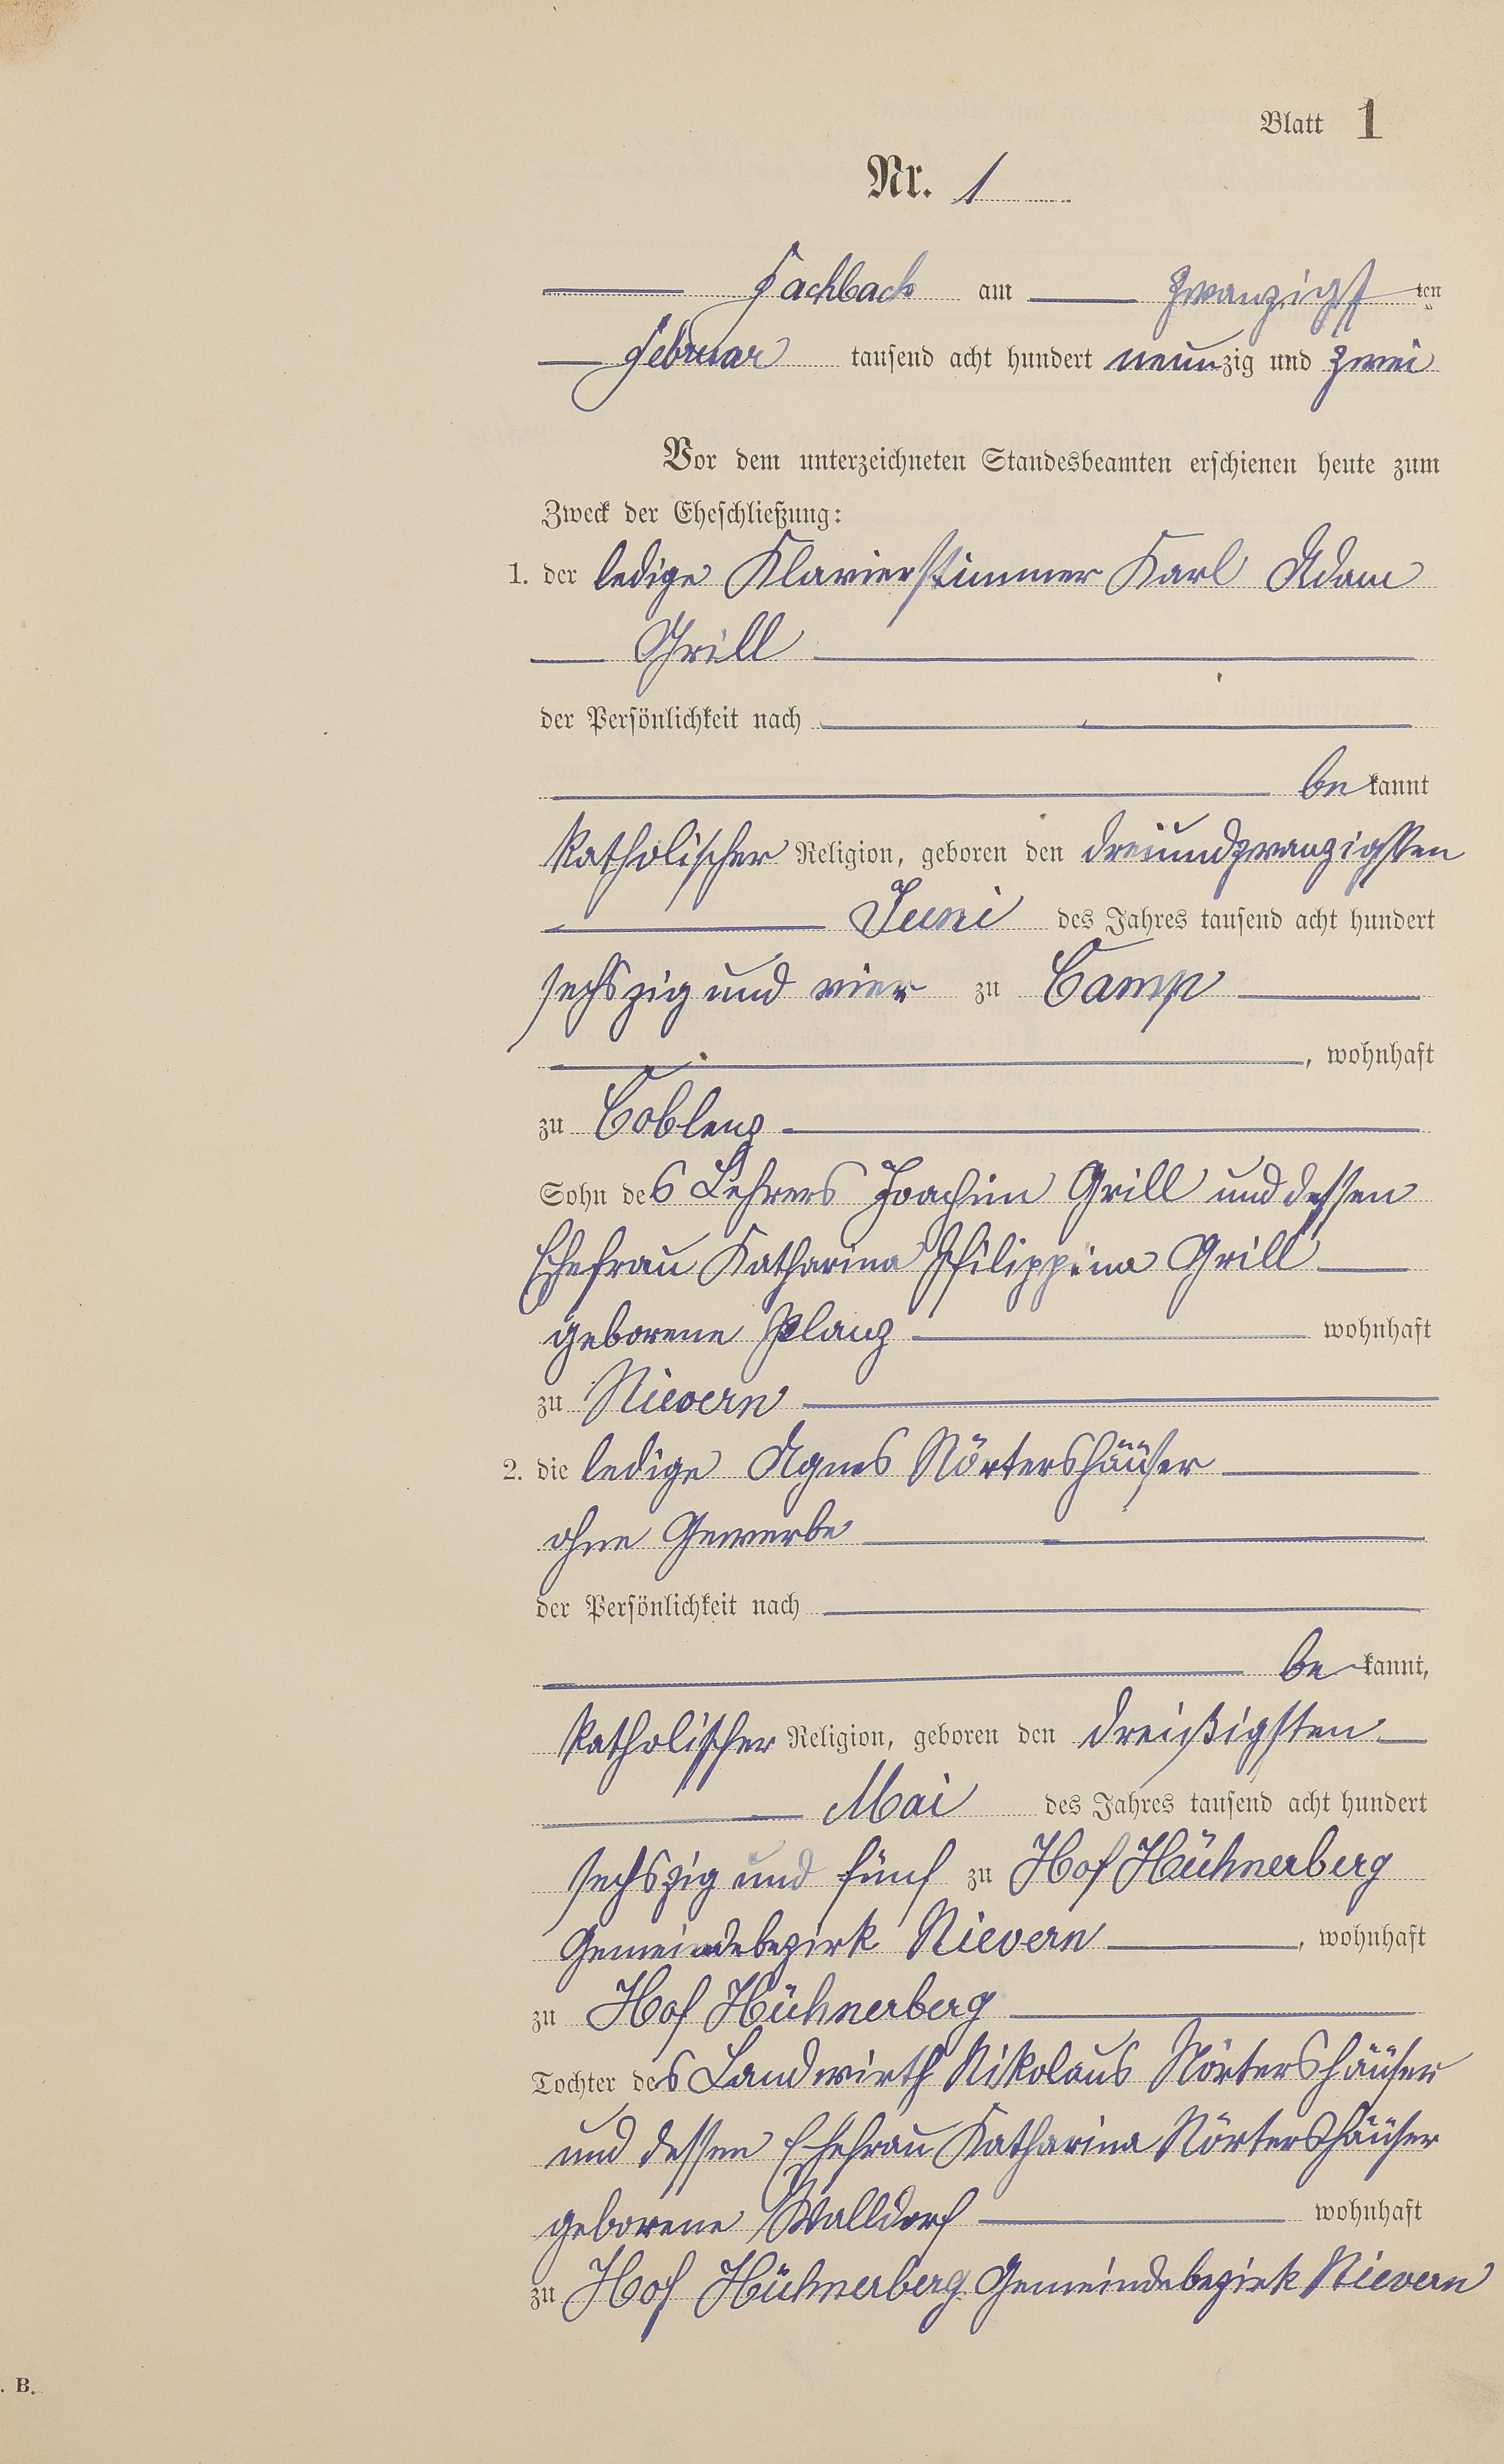 Blatt 1
Nr. 1
Fachbach am zwanzigsten
Februar tausend acht hundert neunzig und zwei
Vor dem unterzeichneten Standesbeamten erschienen heute zum
Zweck der Eheschließung:
1. der ledige Klavierstimmer Karl Adam
Grill
der Persönlichkeit nach
bekannt
katholischer Religion, geboren den dreiundzwanzigsten
Juni des Jahres tausend acht hundert
sechszig und vier zu Camp
, wohnhaft
zu Coblenz
Sohn des Lehrers Joachim Grill und dessen
Ehefrau Katharina Philippina Grill
geborene Planz wohnhaft
zu Nievern
2. die ledige Agnes Nörtershäuser
ohne Gewerbe
der Persönlichkeit nach
bekannt,
katholischer Religion, geboren den dreißigsten
Mai des Jahres tausend acht hundert
sechszig und fünf zu Hof Hühnerberg
Gemeindebezirk Nievern, wohnhaft
zu Hof Hühnerberg
Tochter des Landwirth Nikolaus Nörtershäuser
und dessen Ehefrau Katharina Nörtershäuser
geborene Walldorf wohnhaft
zu Hof Hühnerberg Gemeindebezirk Nievern
. B.